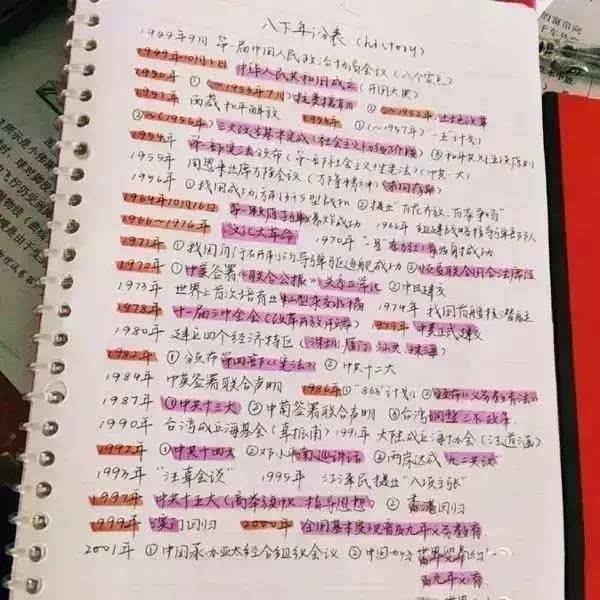 八下年份表 (history)
1949年9月 第一届中国人民政治协商会议
1949年10月1日 中华人民共和国成立 (开国大典)
1950年 ① (~1953年7月) 抗美援朝 ② (~1952年) 土地改革
1951年 西藏和平解放 1953年 ① (~1957年) 一五计划
②~(1956年) 三大改造基本完成 (社会主义初级阶段) ③ 和平共处五项原则
1954年 第一部宪法颁布 (中共一大)
1955年 周恩来出席万隆会议 (万隆精神) 求同存异
1956年 ② 提出"百花齐放、百家争鸣"
1964年10月16日 第一颗原子弹爆炸成功 1966年 组建战略核导弹部队
1966~1976年 文化大革命 1970年 "东方红一号"发射成功
1971年 ① 我国自行研制的导弹驱逐舰成功 ② 恢复联合国合法席位
1972年 ① 中美签署《联合公报》 ② 中日建交
1973年 世界上首次培育出籼型杂交水稻 1974年 我国首艘核潜艇
1978年 十一届三中全会 (改革开放开端) 1979年 中美正式建交
1980年 建立四个经济特区 (深圳 厦门 汕头 珠海)
1982年 ① 颁布第四部《宪法》 ② 中共十二大
1984年 中英签署联合声明 1986年 ① "863"计划 ② 颁布《义务教育法》
1987年 ① 中共十三大 ② 中葡签署联合声明 ③ 台湾调整"三不"政策
1990年 台湾成立海基会 (辜振甫) 1991年 大陆成立海协会 (汪道涵)
1992年 ① 中共十四大 ② 邓小平南巡讲话 ③ 两岸达成"九二共识"
1993年 "汪辜会谈" 1995年 江泽民提出"八项主张"
1997年 中共十五大 (高举 指导思想) ② 香港回归
1999年 澳门回归 2000年 全国基本实现普及九年义务教育
2001年 ① 中国承办亚太经合组织会议 ② 中国加入世界贸易
九年义务